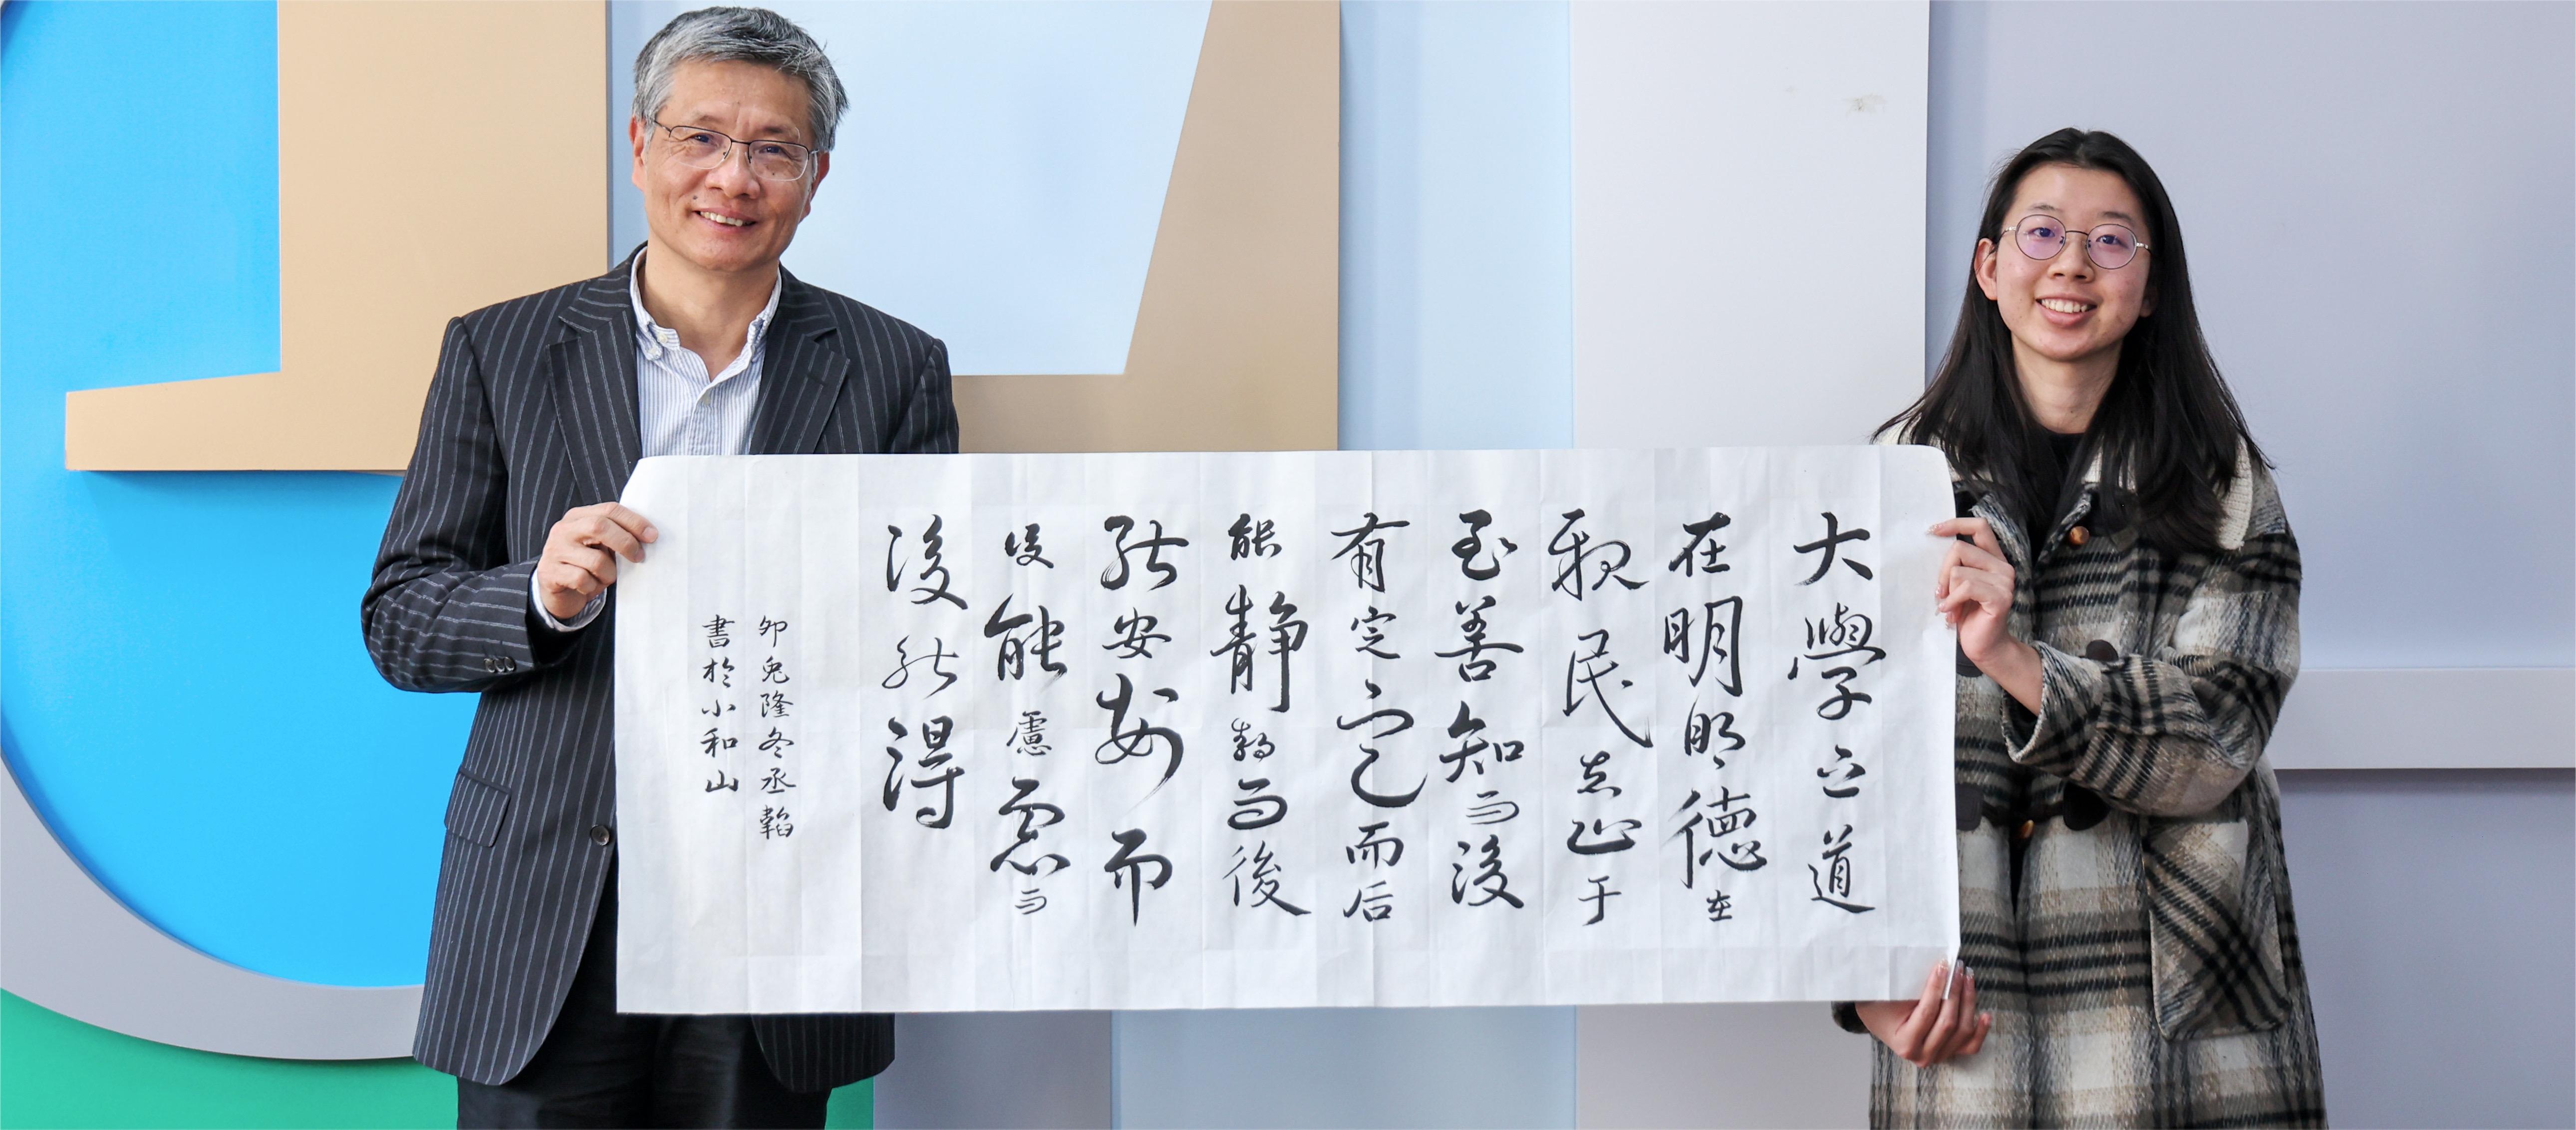 大學之道
在明明德在
親民在止于
至善知而後
有定定而后
能静静而後
能安安而
後能慮慮而
後能得
卯兔隆冬丞韜
書於小和山